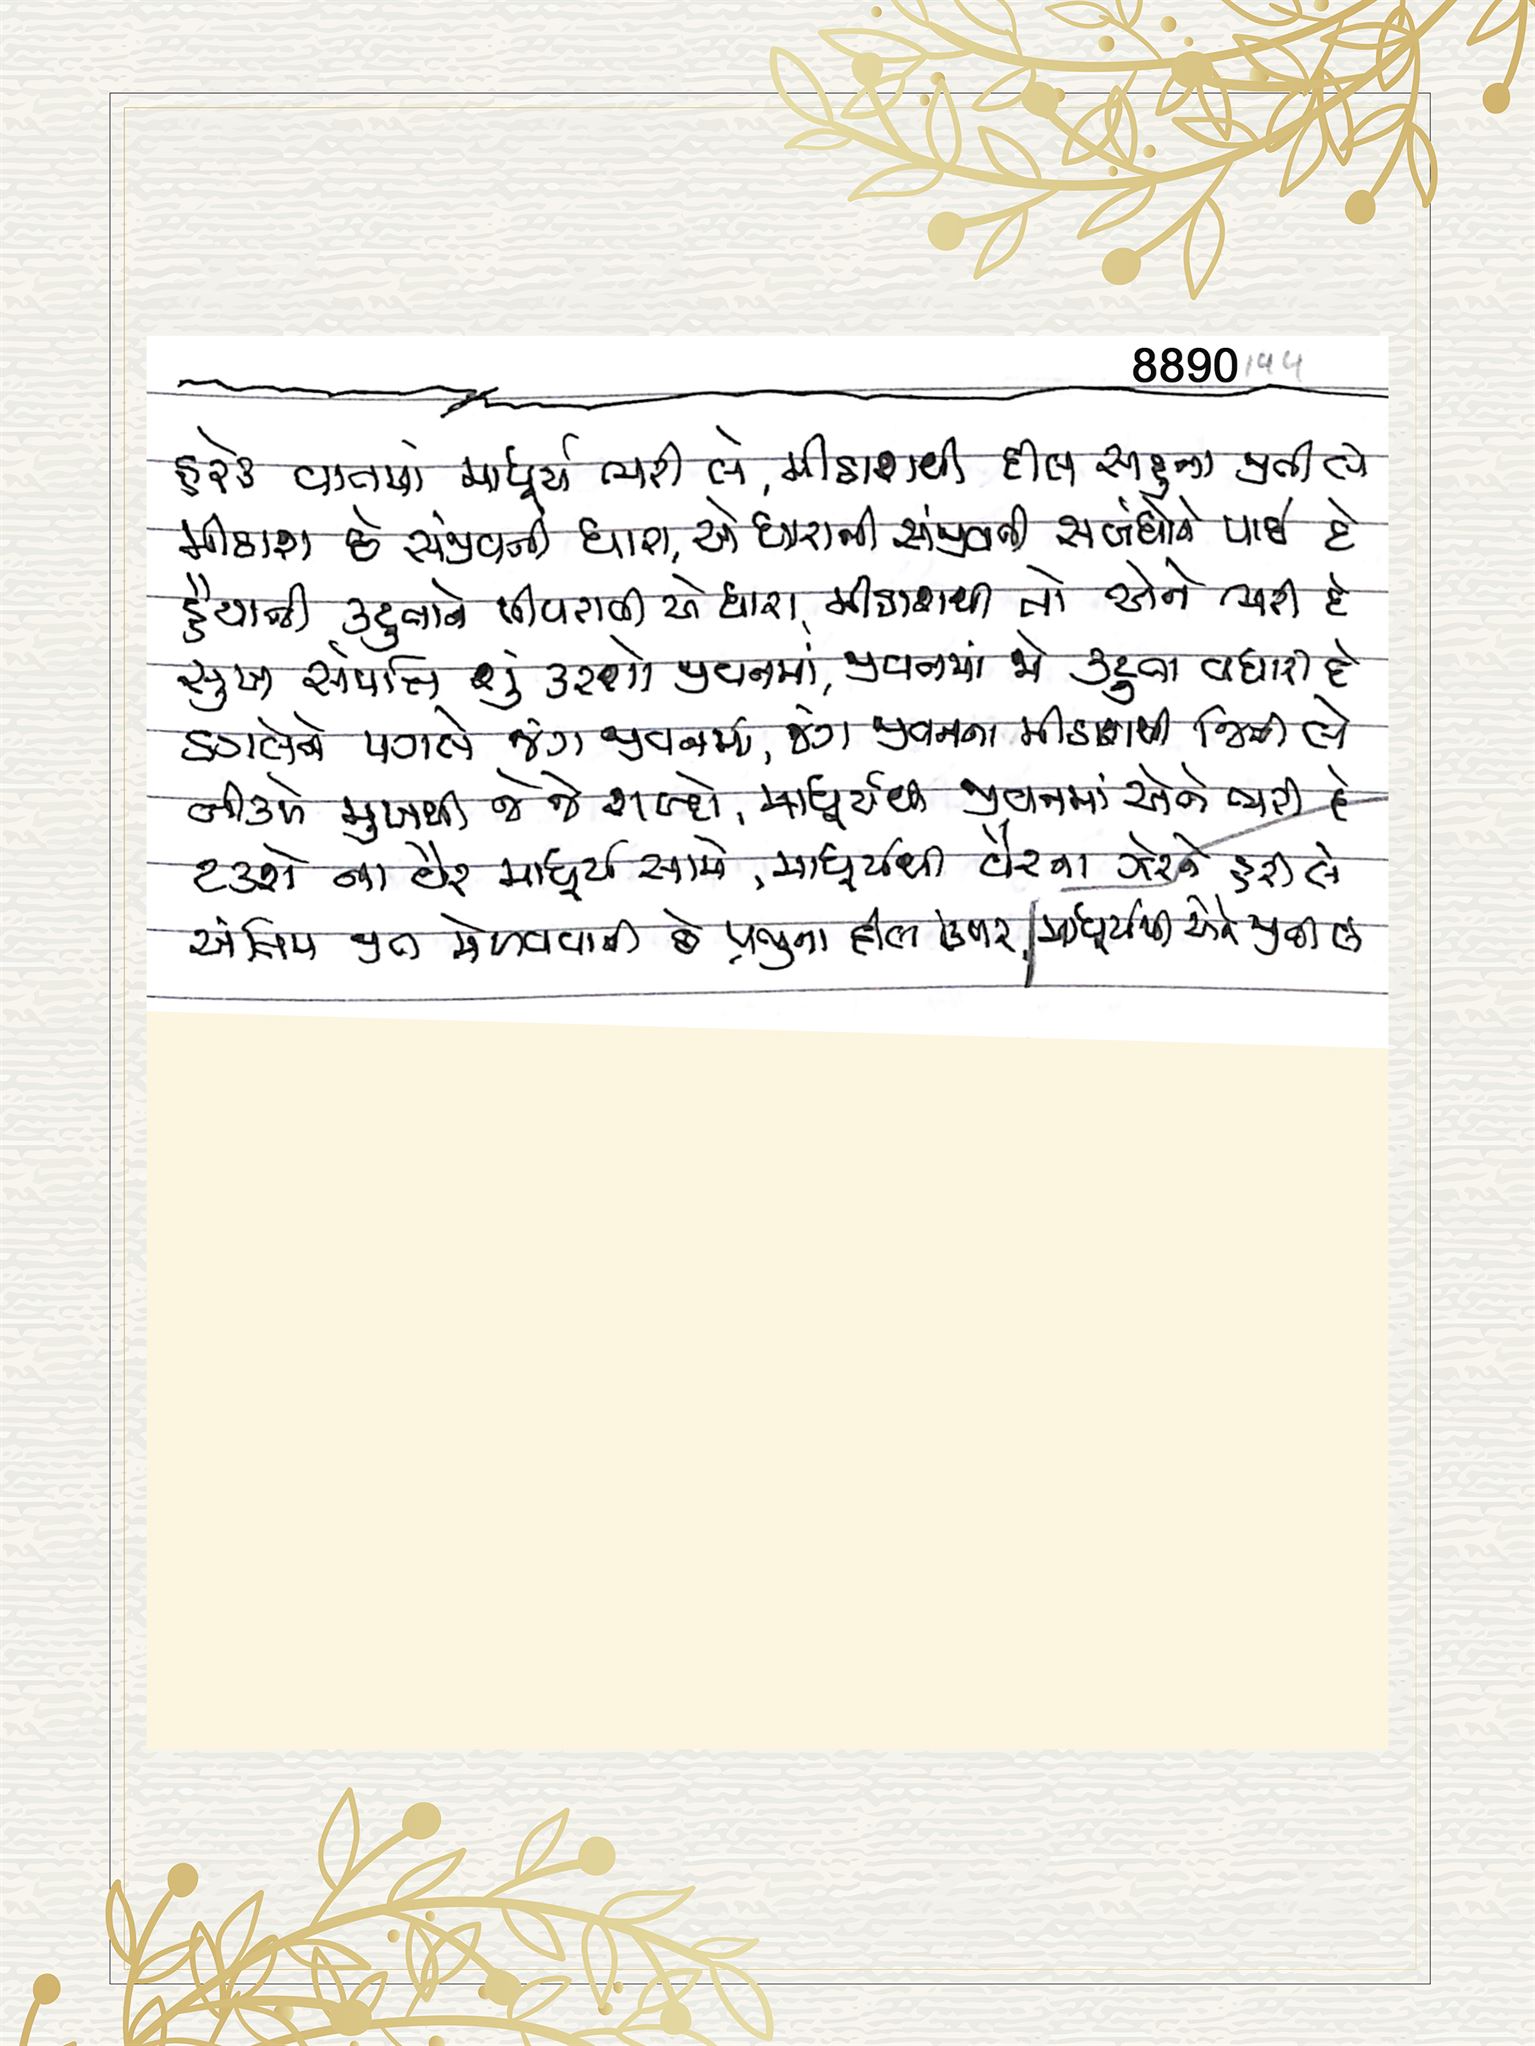 8890
હરેક વાતમાં માધૂર્ય ભરી લે, મીઠાશથી દીલ સહુના જીતી લે
મીઠાશ છે સંજીવની ધારા, એ ધારાની સંજીવની સબંધોને પાઈ દે
હૈયાની કટુતાને પીવરાવી એ ધારા, મીઠાશથી તો એને ભરી દે
સુખ સંપત્તિ શું કરશે જીવનમાં, જીવનમાં જો કટુતા વધારી દે
ડગલેને પગલે જંગ જીવનમાં, જંગ જીવનના મીઠાશથી જિતી લે
નીકળે મુખથી જે જે શબ્દો, માધૂર્યથી જીવનમાં એને ભરી દે
ટકશે ના વૈર માધૂર્ય સામે, માધૂર્યથી વૈરના ઝેરને હરી લે
અંતિમ જીત મેળવવાની છે પ્રભુના દીલ ઉપર, માધૂર્યથી એને જીતી લે